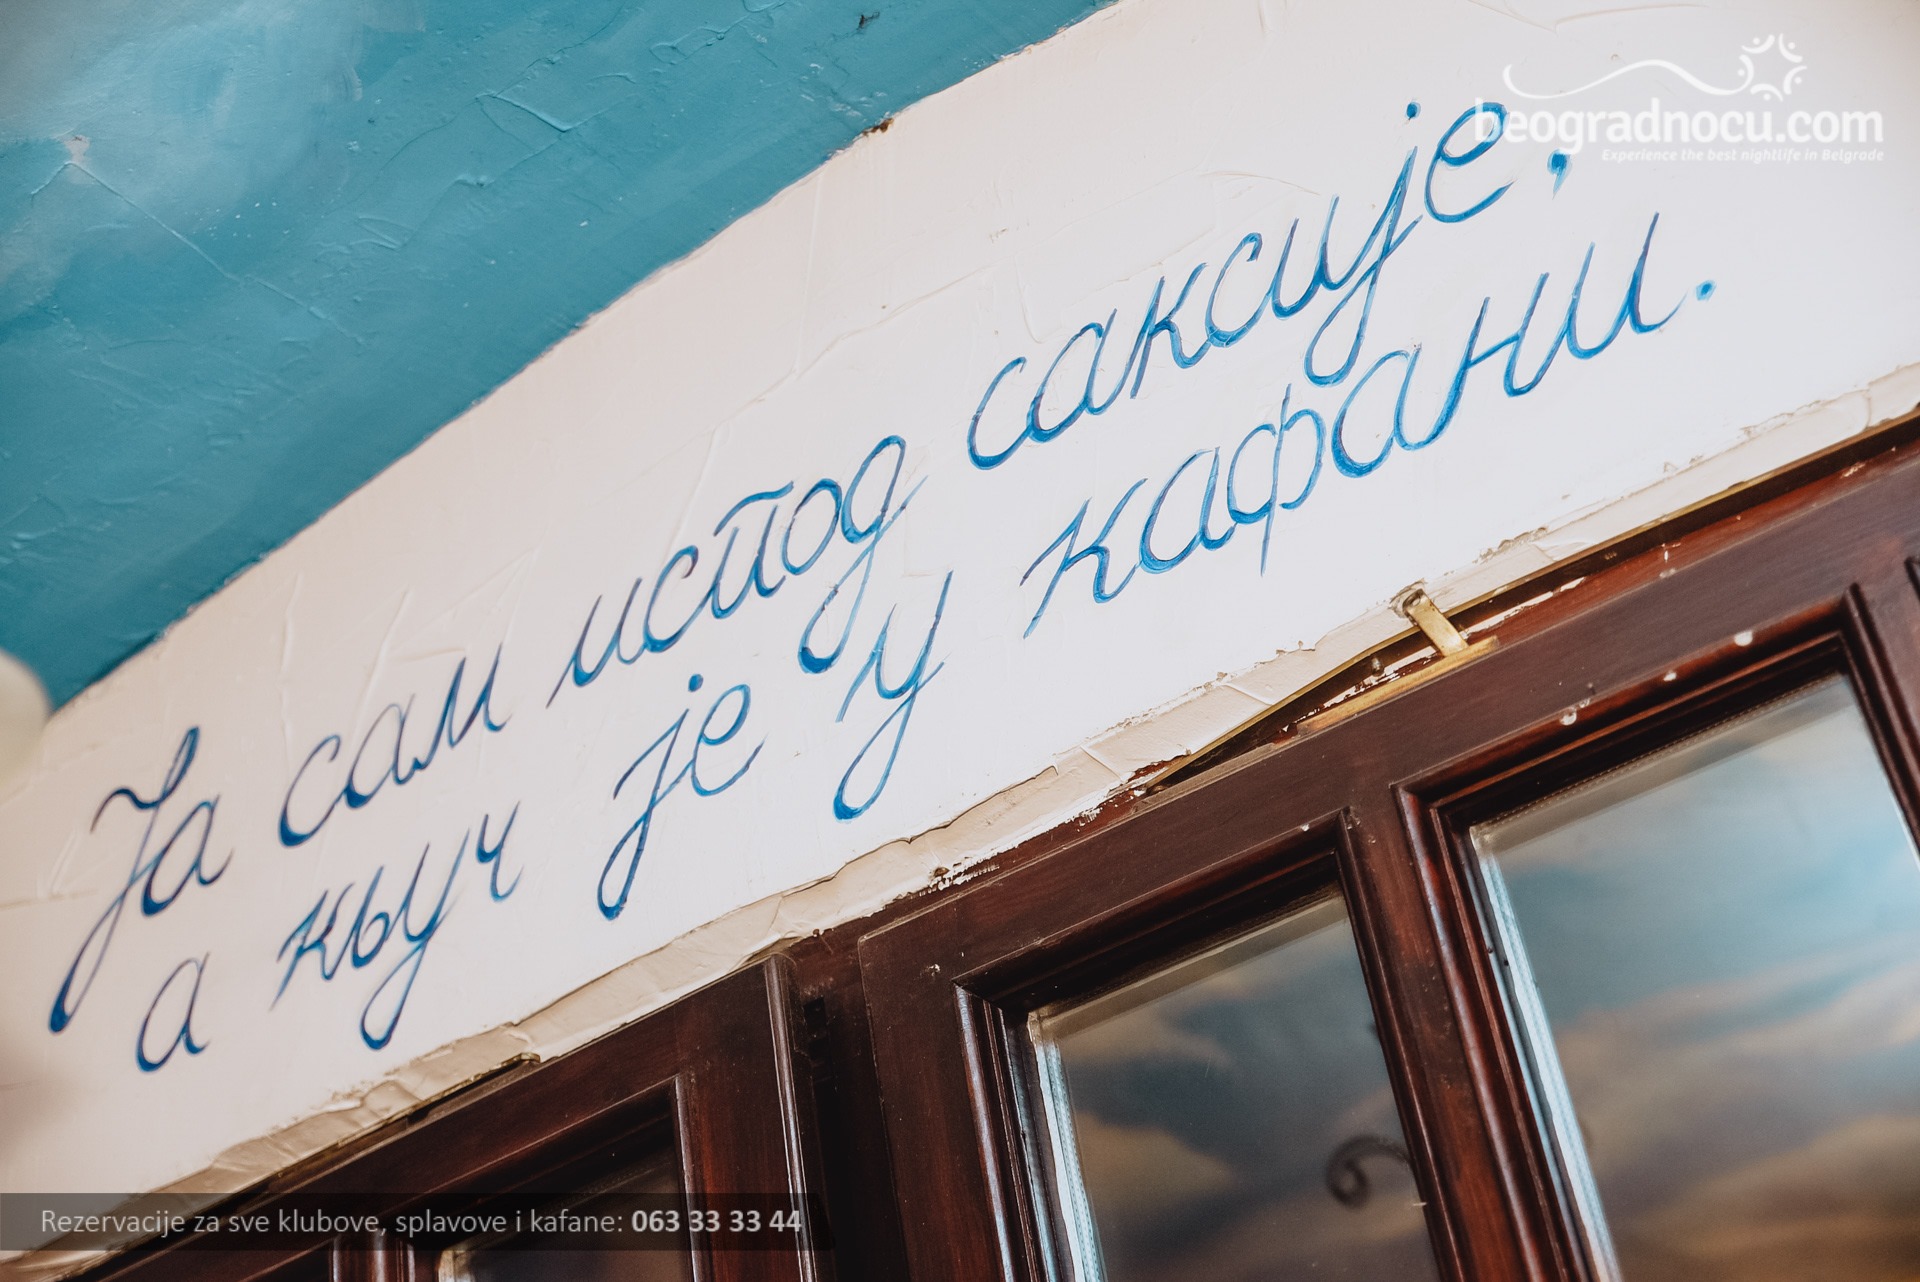 beogradnocu.com
Experience the best nightlife in Belgrade
Ја сам испод саксије,
а кьуч је у кафани.
Rezervacije za sve klubove, splavove i kafane: 063 33 33 44